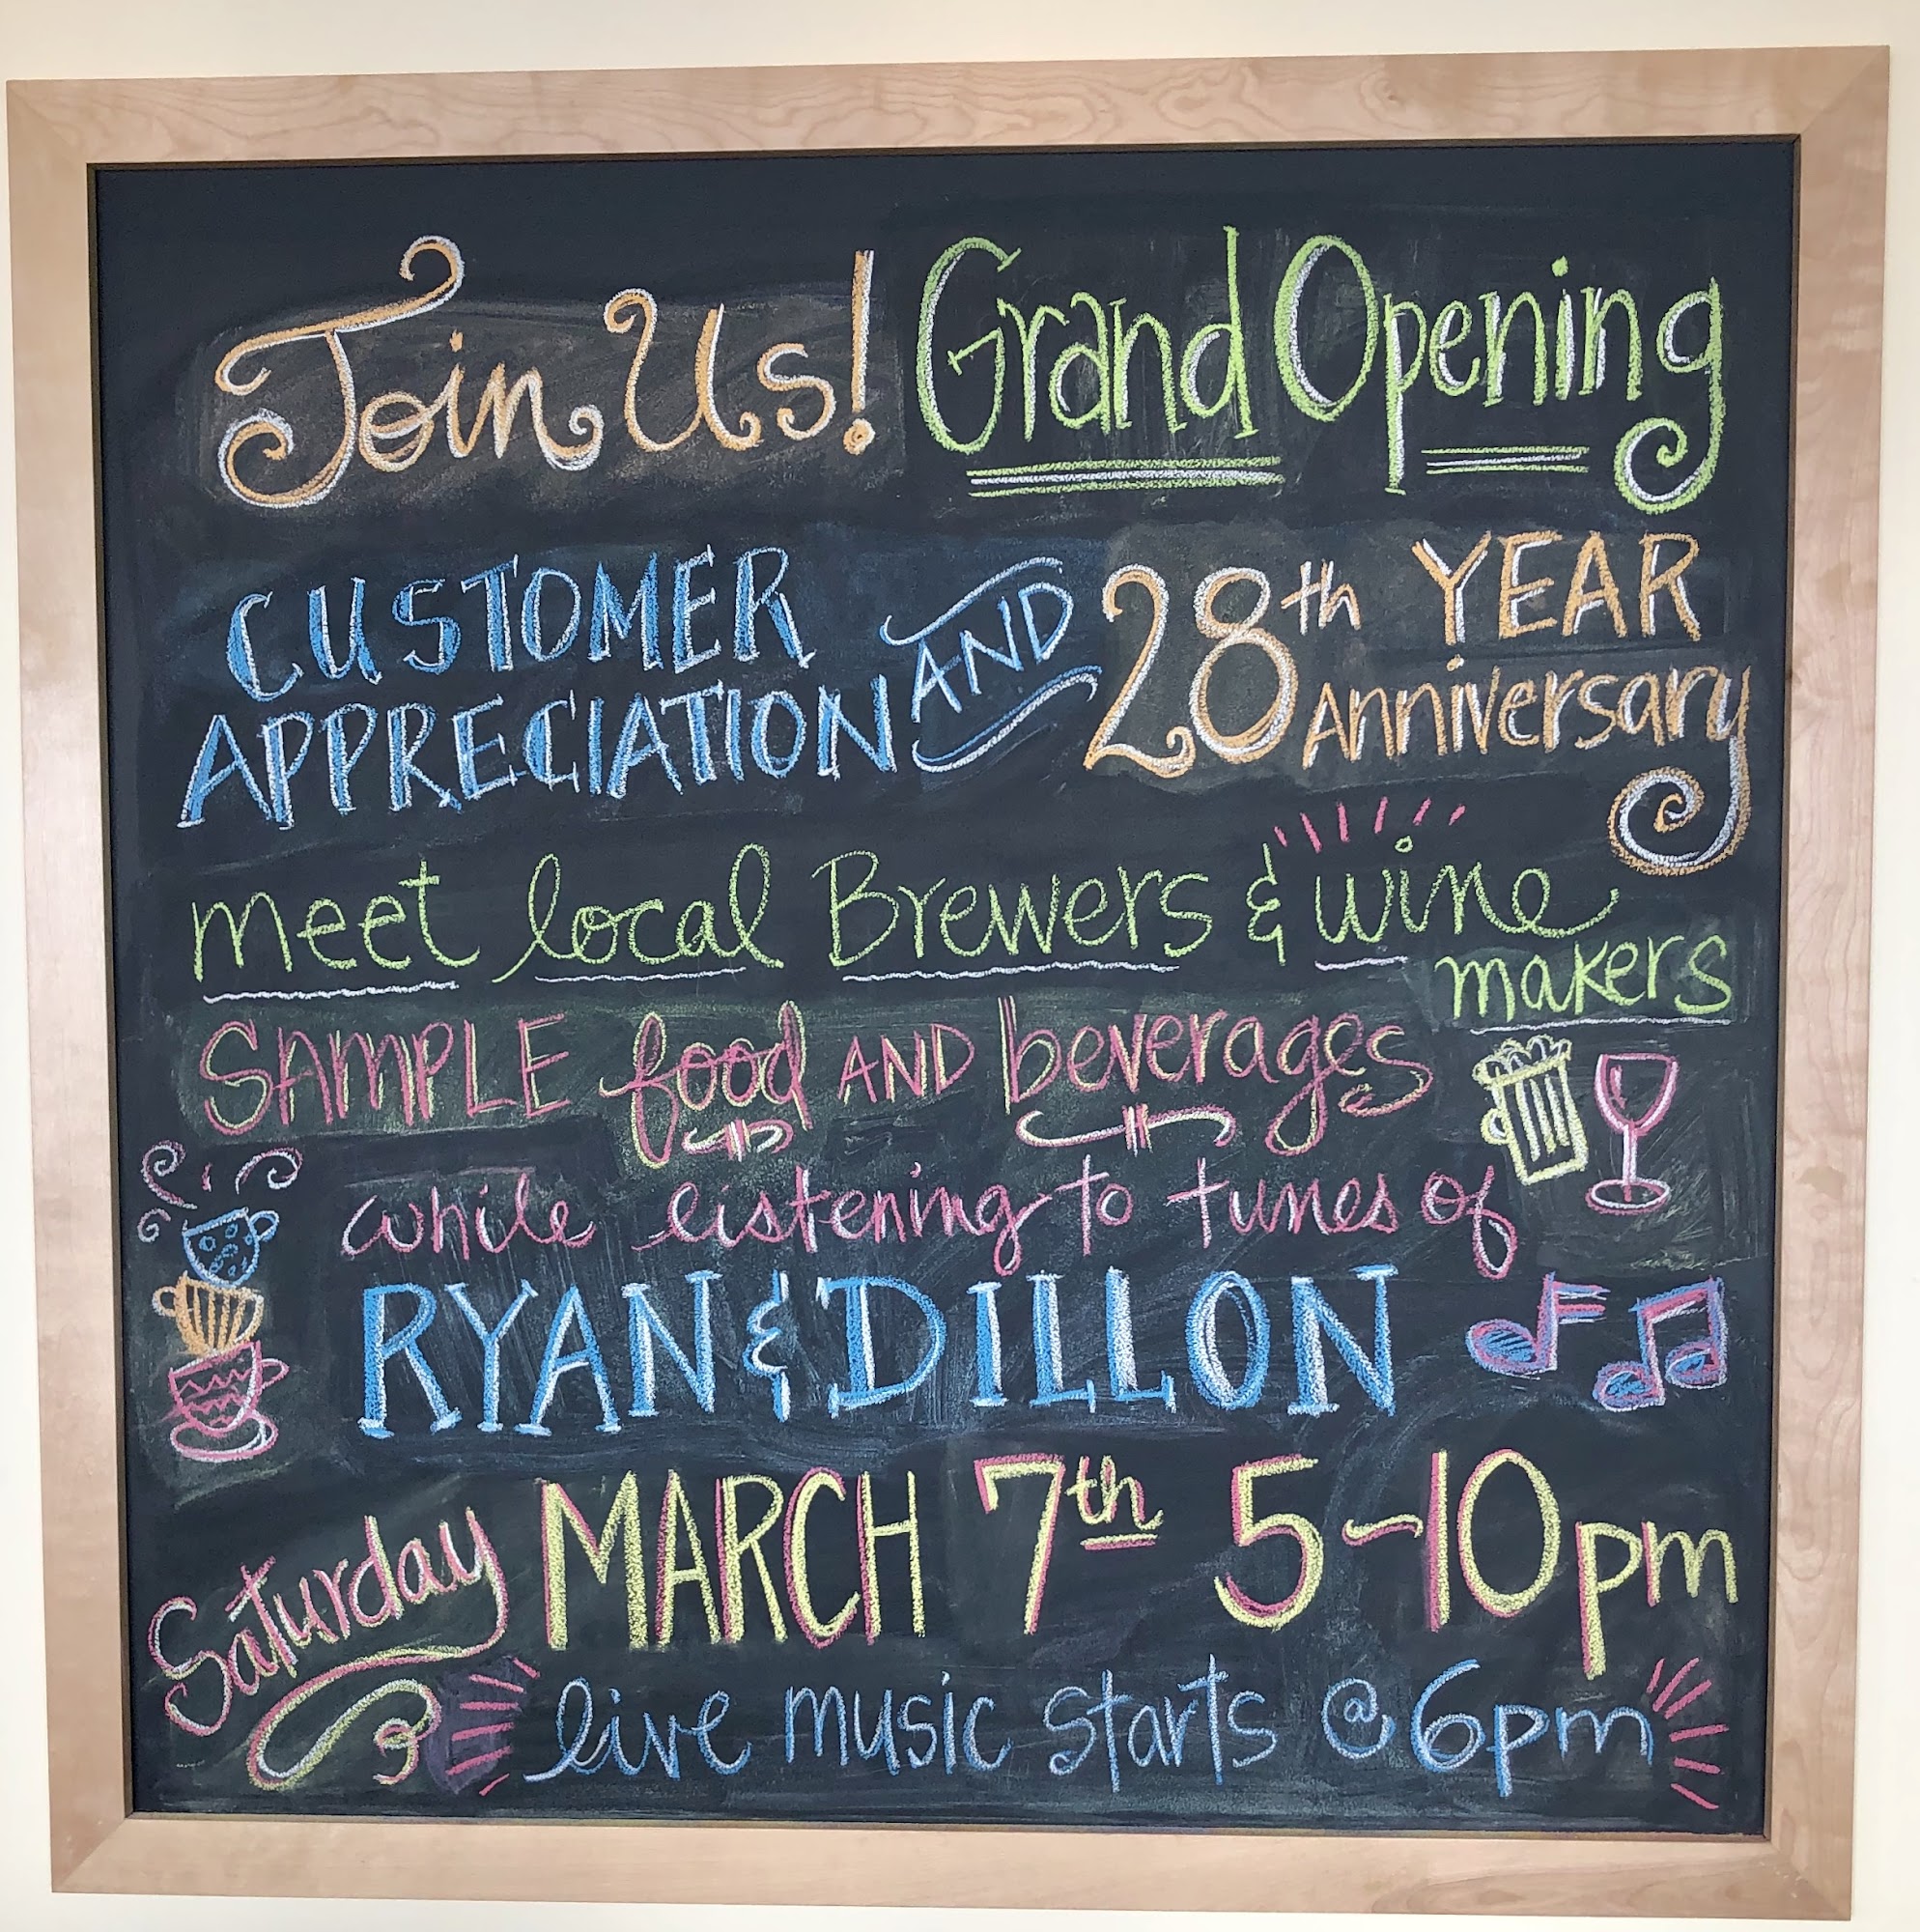 Join Us! Grand Opening
CUSTOMER APPRECIATION AND 28th YEAR Anniversary
meet local Brewers & wine makers
SAMPLE food AND beverages
while listening to tunes of
RYAN & DILLON
Saturday MARCH 7th 5-10pm
live music starts @ 6pm